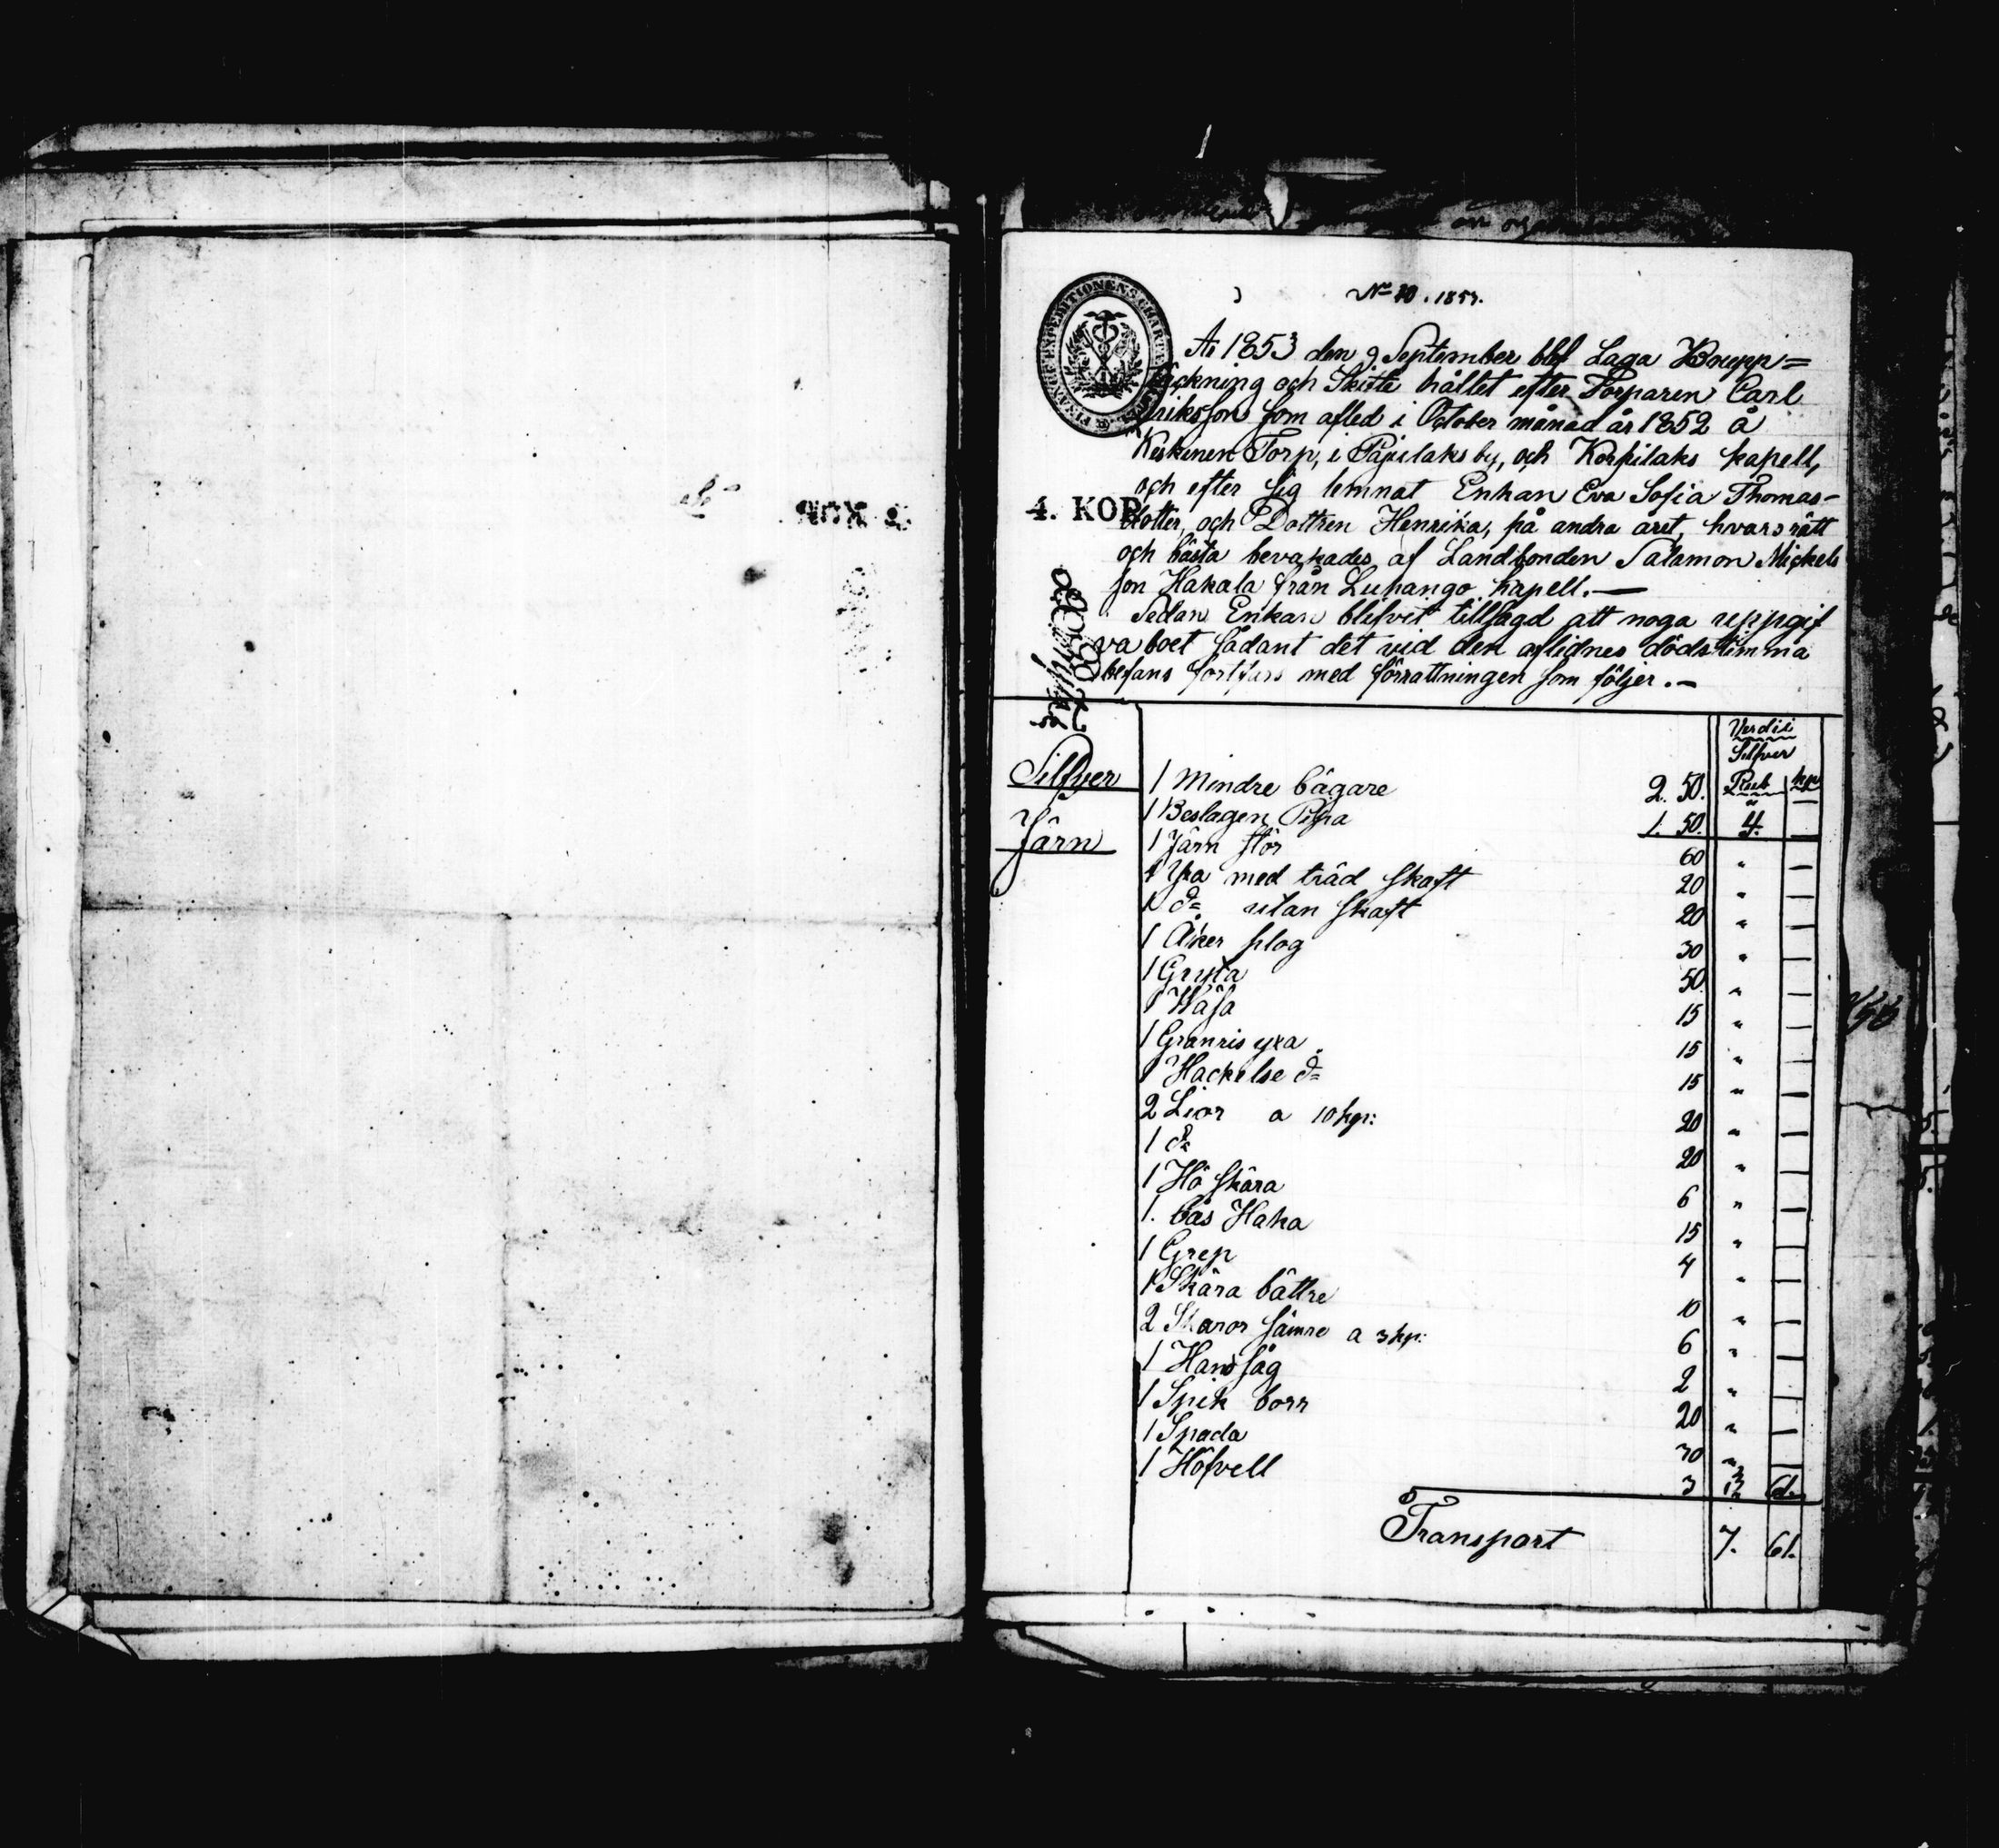 No 10. 1853.
År 1853 den 9 September blef Laga Bouppteckning
och Skifte hållet efter Torparen Carl
Eriksson som afled i October månad år 1852 å
Keskinen Torp, i Pajulaks by, och Korpilaks kapell,
och efter sig lemnat Enkan Eva Sofia Thomas-
4. KOP.
dotter, och Dottren Henrika, på andra året, hvars rätt
och bästa bevakades af Landbonden Salamon Mickels
son Hakala från Luhango kapell. —
Sedan Enkan blifvit tillsagd att noga uppgif
va boet sådant det vid den aflidnes dödstimma
befans fortfars med förrattningen som följer. —
Verdie
Silfver
Rub kop
Silfver
1 Mindre bägare 2. 50. " —
1 Beslagen Pipa 1. 50. 4. —
Järn
1 Järn stör 60 " —
1 Yxa med träd skaft 20 " —
1 do utan skaft 20 " —
1 Åker plog 30 " —
1 Gryta 50 " —
1 15 " —
1 Granris yxa 15 " —
1 Hackelse do 15 " —
2 Lior a 10 kpr: 20 " —
1 do 20 " —
1 Hö skära 6 " —
1. bås Haka 15 " —
1 Grep 4 " —
1 Skära bättre 10 " —
2 Skäror sämre a 3 kpr: 6 " —
1 Hand såg 2 " —
1 Spik borr 20 " —
1 Spada 30 " —
1 Höfvell 3 3 61.
Transport 7. 61.